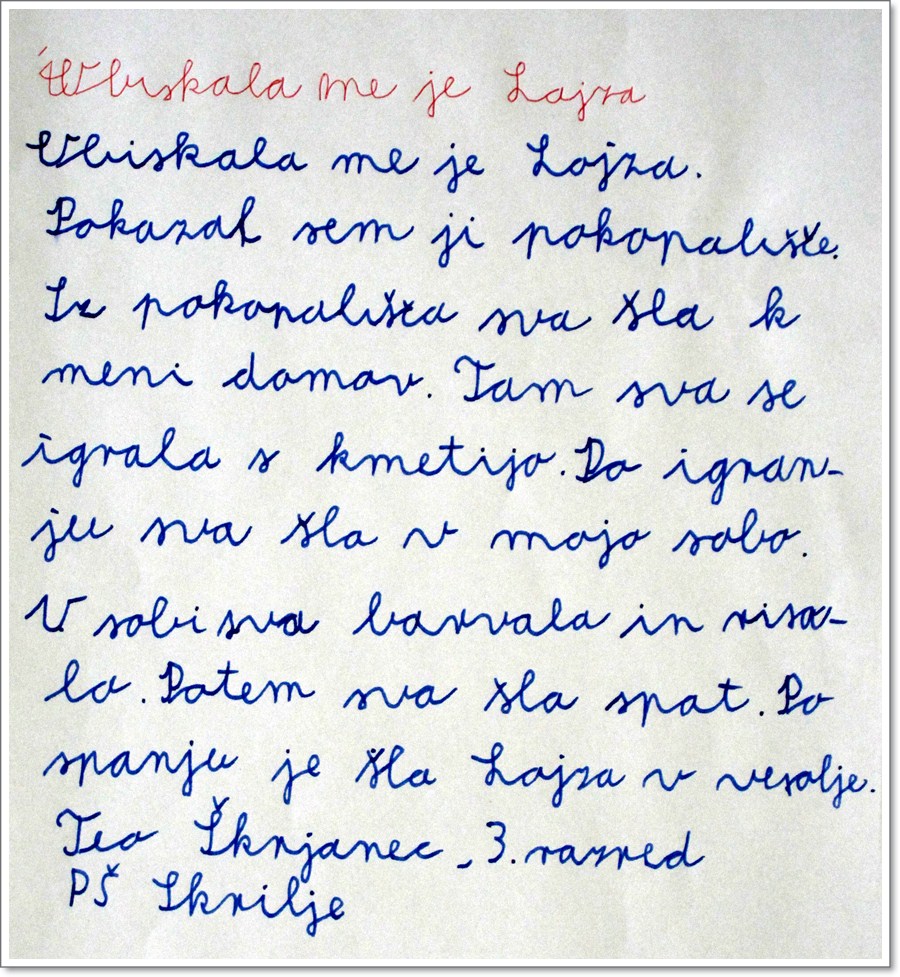 Obiskala me je Lojza
Obiskala me je Lojza.
Pokazal sem ji pokopališče.
Iz pokopališča sva šla k
meni domov. Tam sva se
igrala s kmetijo. Po igran-
ju sva šla v mojo sobo.
V sobi sva barvala in risa-
la. Potem sva šla spat. Po
spanju je šla Lojza v vesolje.
Teo Škrjanec, 3. razred
PŠ Skrilje